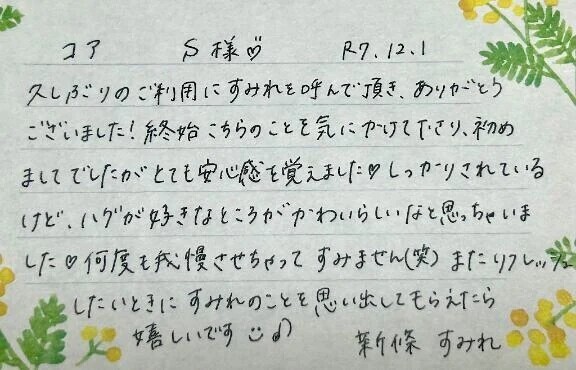 コア S様♡ R7.12.1
久しぶりのご利用にすみれを呼んで頂き、ありがとう
ございました!終始こちらのことを気にかけて下さり、初め
ましてでしたがとても安心感を覚えました♡しっかりされている
けど、ハグが好きなところがかわいらしいなと思っちゃいま
した♡何度も我慢させちゃってすみません(笑)またリフレッシュ
したいときにすみれのことを思い出してもらえたら
嬉しいです☺♪ 新條 すみれ